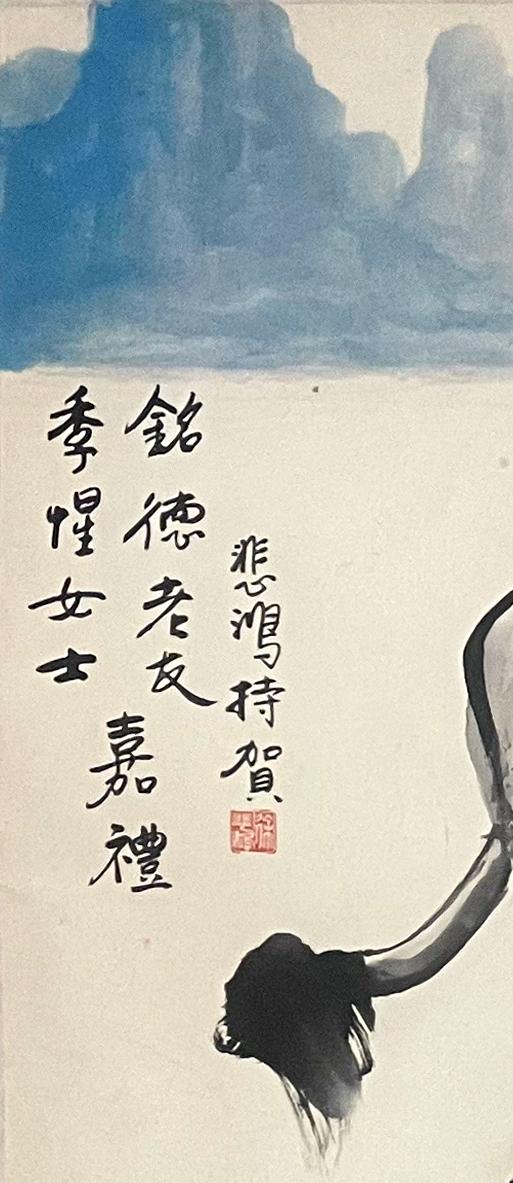 銘德老友
季惺女士
嘉禮
悲鴻持賀